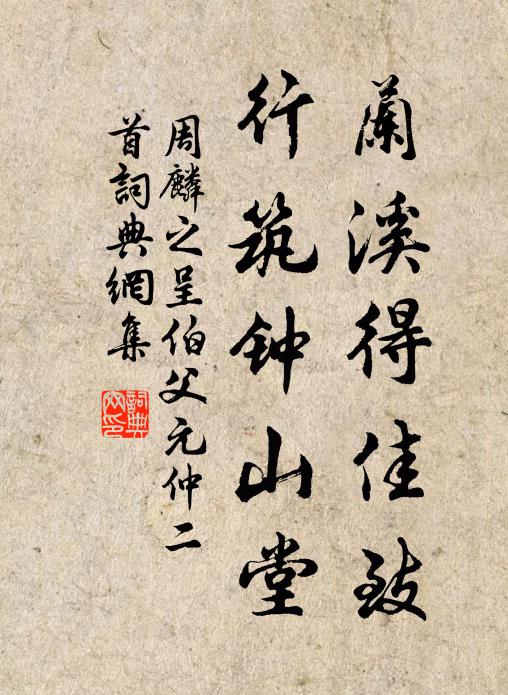 蘭溪得佳致
行筑钟山堂
周麟之呈伯父元仲二
首詞典網集
詞典網印